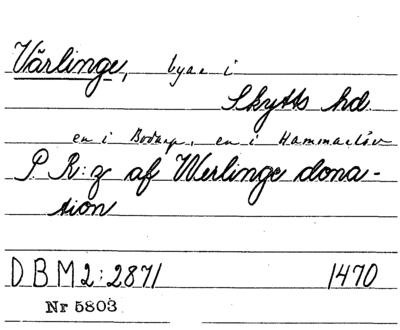 Värlinge, byar i
Skytts hd.
en i Bodarp, en i Hammarlöv
P. R:z af Werlinge dona-
tion
DBM2:2871 1470
Nr 5803